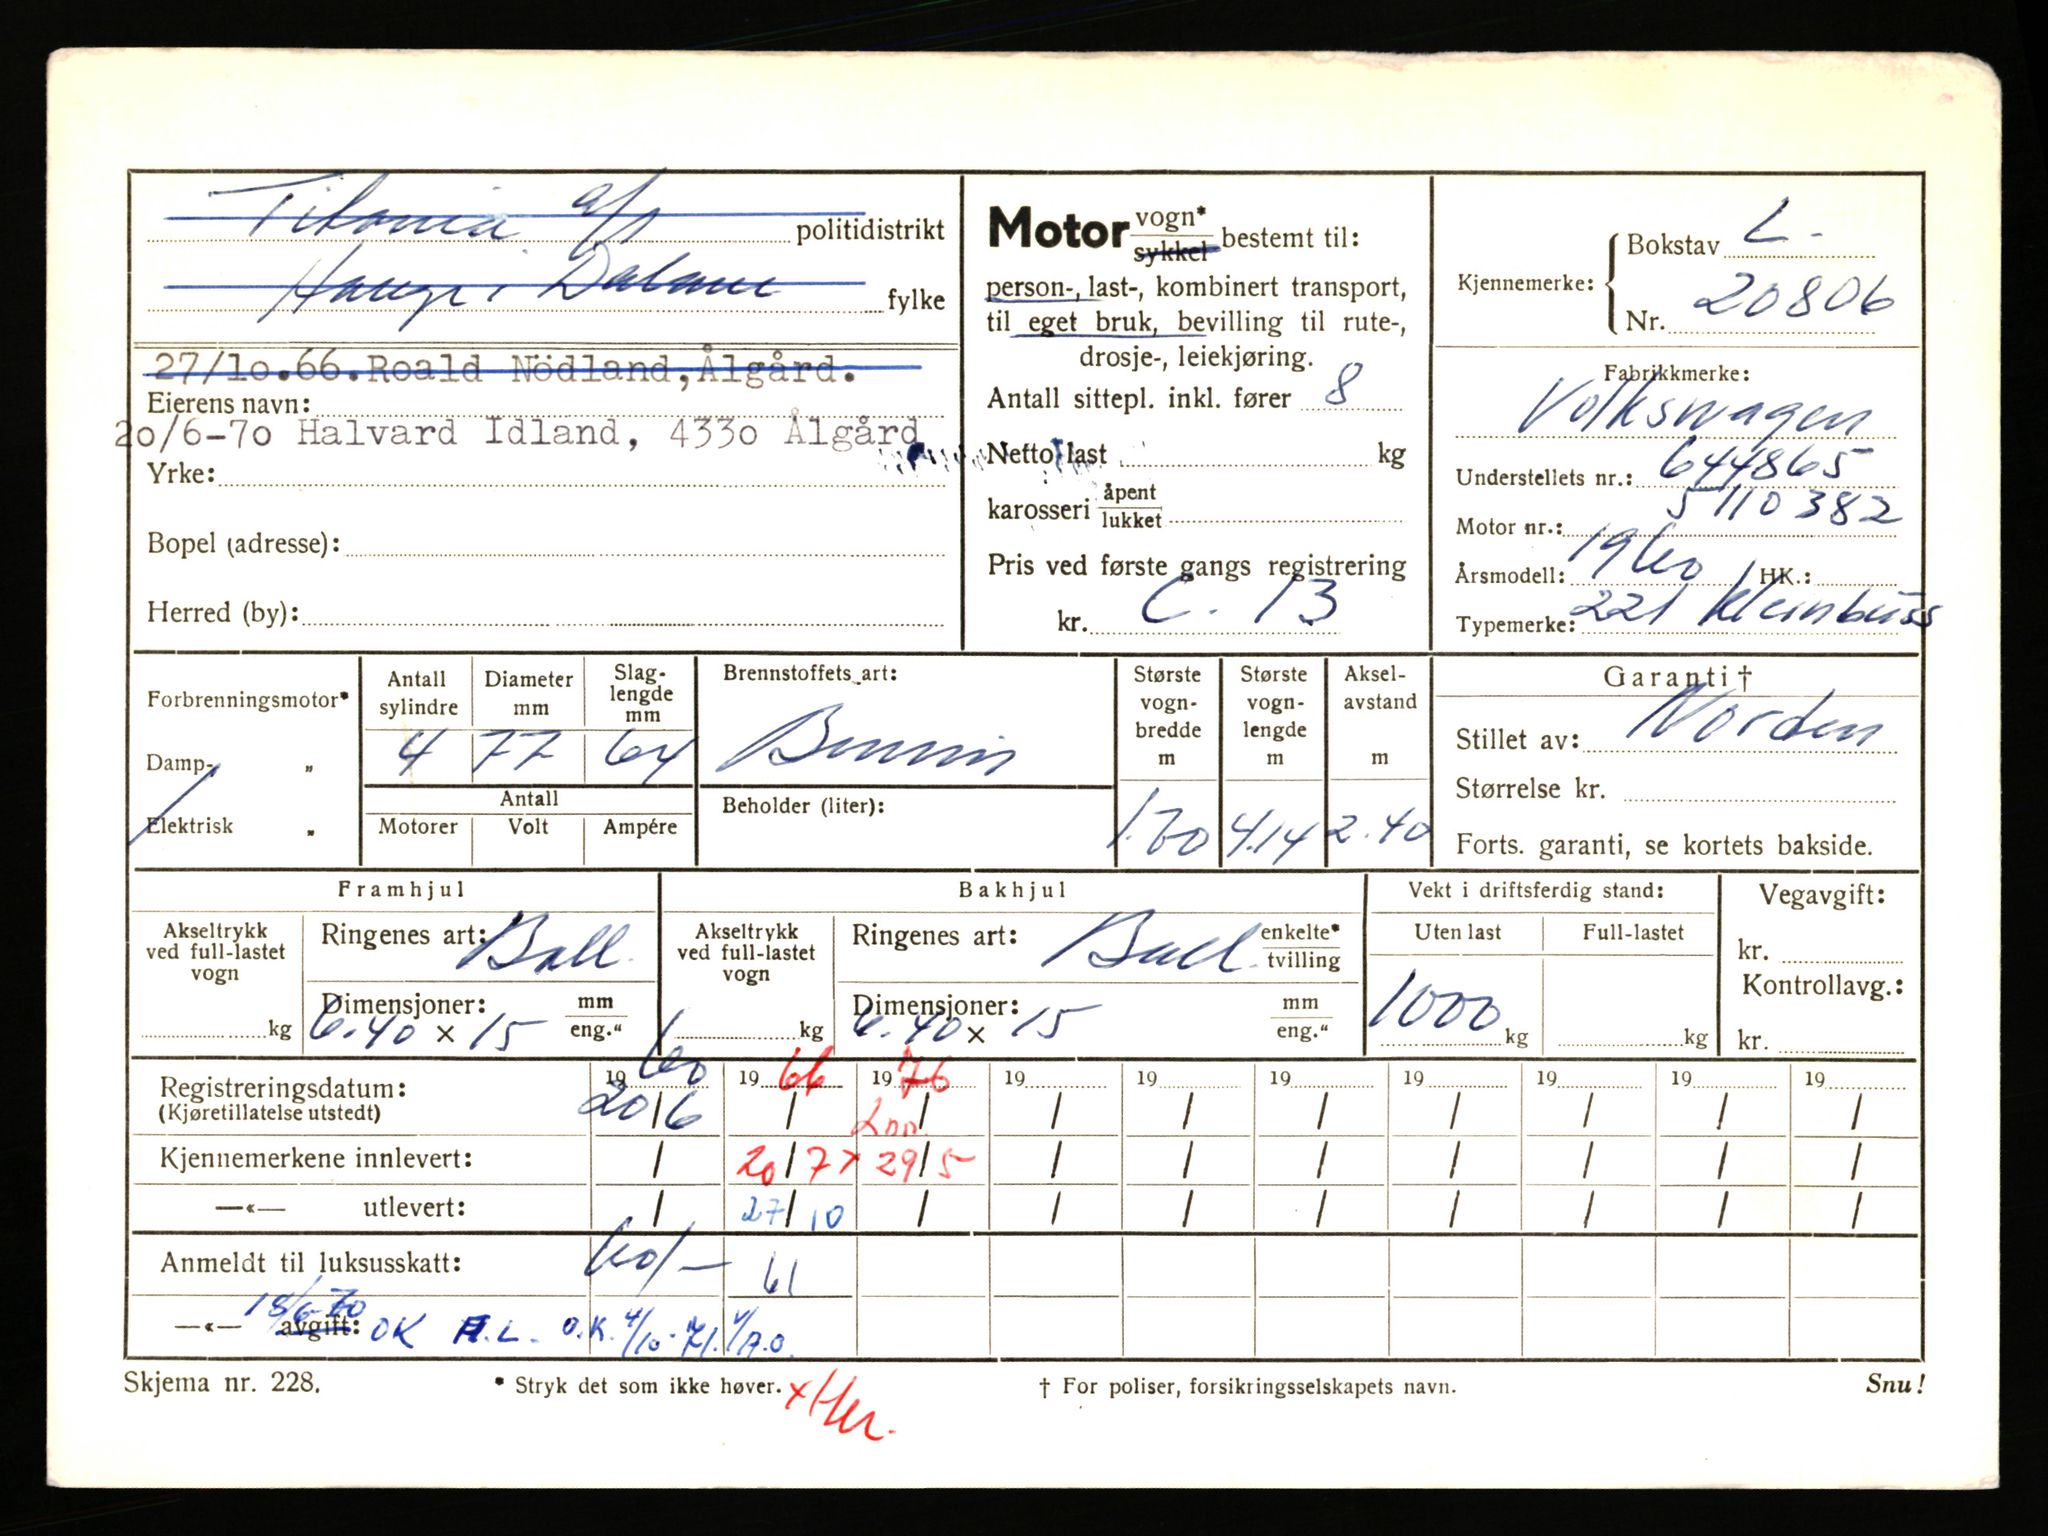 Titania a/s politidistrikt
Haugei Dalane fylke
27/10.66.Roald Nödland,Ålgård.
Eierens navn:
20/6-70 Halvard Idland, 4330 Ålgård
Yrke:
Bopel (adresse):
Herred (by):
Motor vogn* sykkel bestemt til:
person-, last-, kombinert transport,
til eget bruk, bevilling til rute-,
drosje-, leiekjøring.
Antall sittepl. inkl. fører 8
Netto last kg
karosseri åpent lukket
Pris ved første gangs registrering
kr. C. 13
Kjennemerke: Bokstav L.
Nr. 20806
Fabrikkmerke:
Volkswagen
Understellets nr.: 644865
Motor nr.: 5110382
Årsmodell: 1960 HK.:
Typemerke: 221 kleinbuss
Forbrenningsmotor*
Damp- „
Elektrisk „
Antall sylindre Diameter mm Slag-lengde mm
4 77 64
Antall
Motorer Volt Ampére
Brennstoffets art:
Bensin
Beholder (liter):
Største vogn-bredde m Største vogn-lengde m Aksel-avstand m
1.70 4.14 2.40
Garanti †
Stillet av: Norden
Størrelse kr.
Forts. garanti, se kortets bakside.
Framhjul
Akseltrykk ved full-lastet vogn kg
Ringenes art: Ball.
Dimensjoner: mm eng."
6.40 x 15
Bakhjul
Akseltrykk ved full-lastet vogn kg
Ringenes art: Ball. enkelte* tvilling
Dimensjoner: mm eng."
6.40 x 15
Vekt i driftsferdig stand:
Uten last Full-lastet
1000 kg kg
Vegavgift:
kr.
Kontrollavg.:
kr.
Registreringsdatum: 1960 1966 1976 19 19 19 19 19 19 19
(Kjøretillatelse utstedt) 20/6 / / / / / / / / /
Kjennemerkene innlevert: / 20/7 x 29/5 / / / / / / /
—«— utlevert: / 27/10 / / / / / / / /
Anmeldt til luksusskatt: 60/- 61
18/6-70
—«— avgift: OK H.L. O.K. 4/10-71. A.O.
Skjema nr. 228.
* Stryk det som ikke høver.
† For poliser, forsikringsselskapets navn.
Snu!